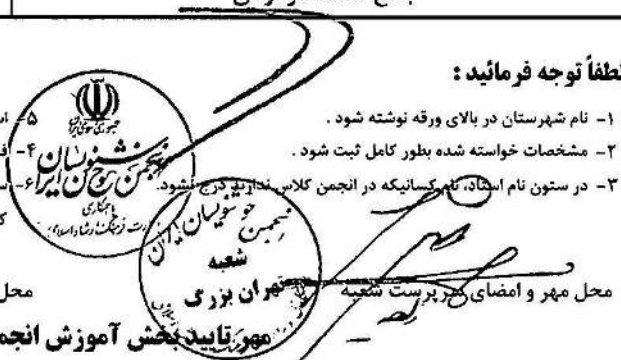 لطفاً توجه فرمائید :
۱- نام شهرستان در بالای ورقه نوشته شود .
۲- مشخصات خواسته شده بطور کامل ثبت شود .
۳- در ستون نام استاد، نام کسانیکه در انجمن کلاس ندارند درج نشود.
۵-
۴-
۶-
انجمن خوشنویسان ایران
انجمن خوشنویسان ایران
شعبه
تهران بزرگ
محل مهر و امضای سرپرست شعبه
محل
مهر تایید بخش آموزش انجم